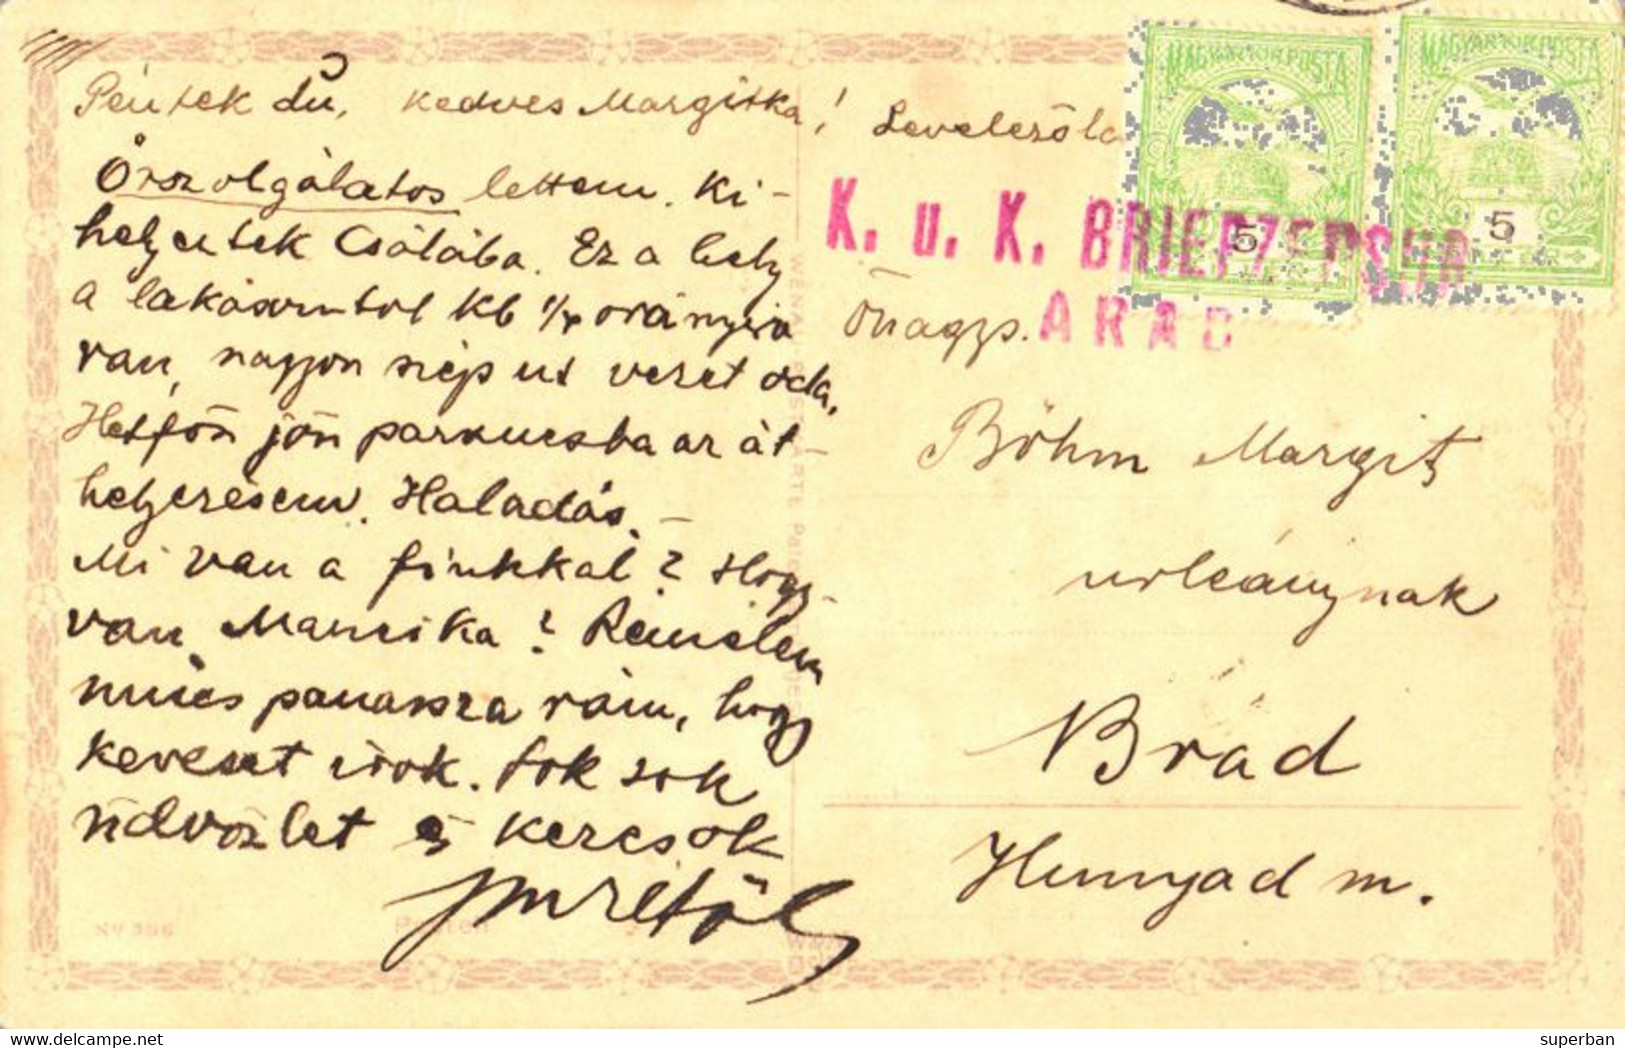 Péntek du, kedves Margitka!
Őrszolgálatos lettem. Ki-
helyeztek Csálába. Ez a hely
a lakásomtól kb 1/4 órányira
van, nagyon szép ut vezet oda.
Hétfőn jön parancsba az át-
helyezésem. Haladás. –
Mi van a fiukkal? Hogy
van Mancika? Remélem
nincs panasza rám, hogy
keveset irok. Sok sok
üdvözlet és kézcsók
Levelezőla
MAGYAR KIR. POSTA
5
MAGYAR KIR. POSTA
5
K. u. K. BRIEFZENSUR
ARAD
Őnagys.
Böhm Margit
urleánynak
Brád
Hunyad m.
No 396
delcampe.net
superban